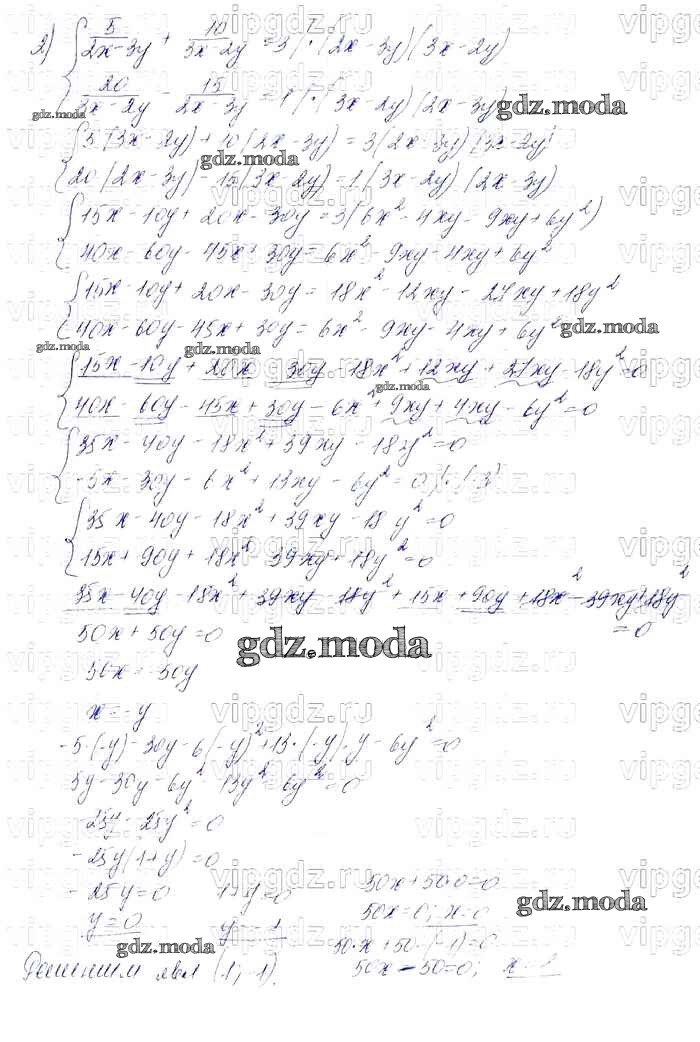 2) { 5/(2x-3y) + 10/(3x-2y) = 3 | · (2x-3y)(3x-2y)
20/(3x-2y) - 15/(2x-3y) = 1 | · (3x-2y)(2x-3y)
{ 5(3x-2y) + 10(2x-3y) = 3(2x-3y)(3x-2y)
20(2x-3y) - 15(3x-2y) = 1(3x-2y)(2x-3y)
{ 15x - 10y + 20x - 30y = 3(6x² - 4xy - 9xy + 6y²)
40x - 60y - 45x + 30y = 6x² - 9xy - 4xy + 6y²
{ 15x - 10y + 20x - 30y = 18x² - 12xy - 27xy + 18y²
40x - 60y - 45x + 30y = 6x² - 9xy - 4xy + 6y²
{ 15x - 10y + 20x - 30y - 18x² + 12xy + 27xy - 18y² = 0
40x - 60y - 45x + 30y - 6x² + 9xy + 4xy - 6y² = 0
{ 35x - 40y - 18x² + 39xy - 18y² = 0
-5x - 30y - 6x² + 13xy - 6y² = 0 | · (-3)
{ 35x - 40y - 18x² + 39xy - 18y² = 0
15x + 90y + 18x² - 39xy + 18y² = 0
35x - 40y - 18x² + 39xy - 18y² + 15x + 90y + 18x² - 39xy + 18y² = 0
50x + 50y = 0
50x = -50y
x = -y
-5·(-y) - 30y - 6(-y)² + 13·(-y)·y - 6y² = 0
5y - 30y - 6y² - 13y² - 6y² = 0
-25y - 25y² = 0
-25y(1+y) = 0
-25y = 0 1+y = 0
y = 0 y = -1
50x + 50·0 = 0
50x = 0; x = 0
50·x + 50·(-1) = 0
50x - 50 = 0; x = 1
Решением явл (1; -1).
gdz.moda
vipgdz.ru